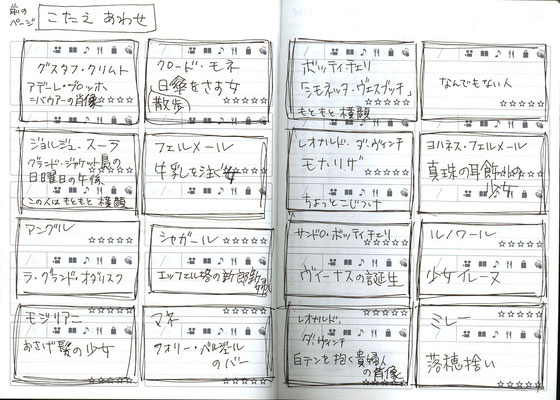 前の
ページ
こたえ あわせ
グスタフ・クリムト
アデーレ・ブロッホ
=バウアーの肖像
クロード・モネ
日傘をさす女
(散歩)
ジョルジュ・スーラ
グランド・ジャット島の
日曜日の午後
この人はもともと横顔
フェルメール
牛乳を注ぐ女
アングル
ラ・グランド・オダリスク
シャガール
エッフェル塔の新郎新婦
モジリアニ
おさげ髪の少女
マネ
フォリー・ベルジェールの
バー
ボッティチェリ
「シモネッタ・ヴェスプッチ」
もともと横顔
なんでもない人
レオナルド・ダ・ヴィンチ
モナ・リザ
ちょっとこじつけ
ヨハネス・フェルメール
真珠の耳飾りの
少女
サンドロ・ボッティチェリ
ヴィーナスの誕生
ルノワール
少女イレーヌ
レオナルド・
ダ・ヴィンチ
白テンを抱く貴婦人
の肖像
ミレー
落穂拾い